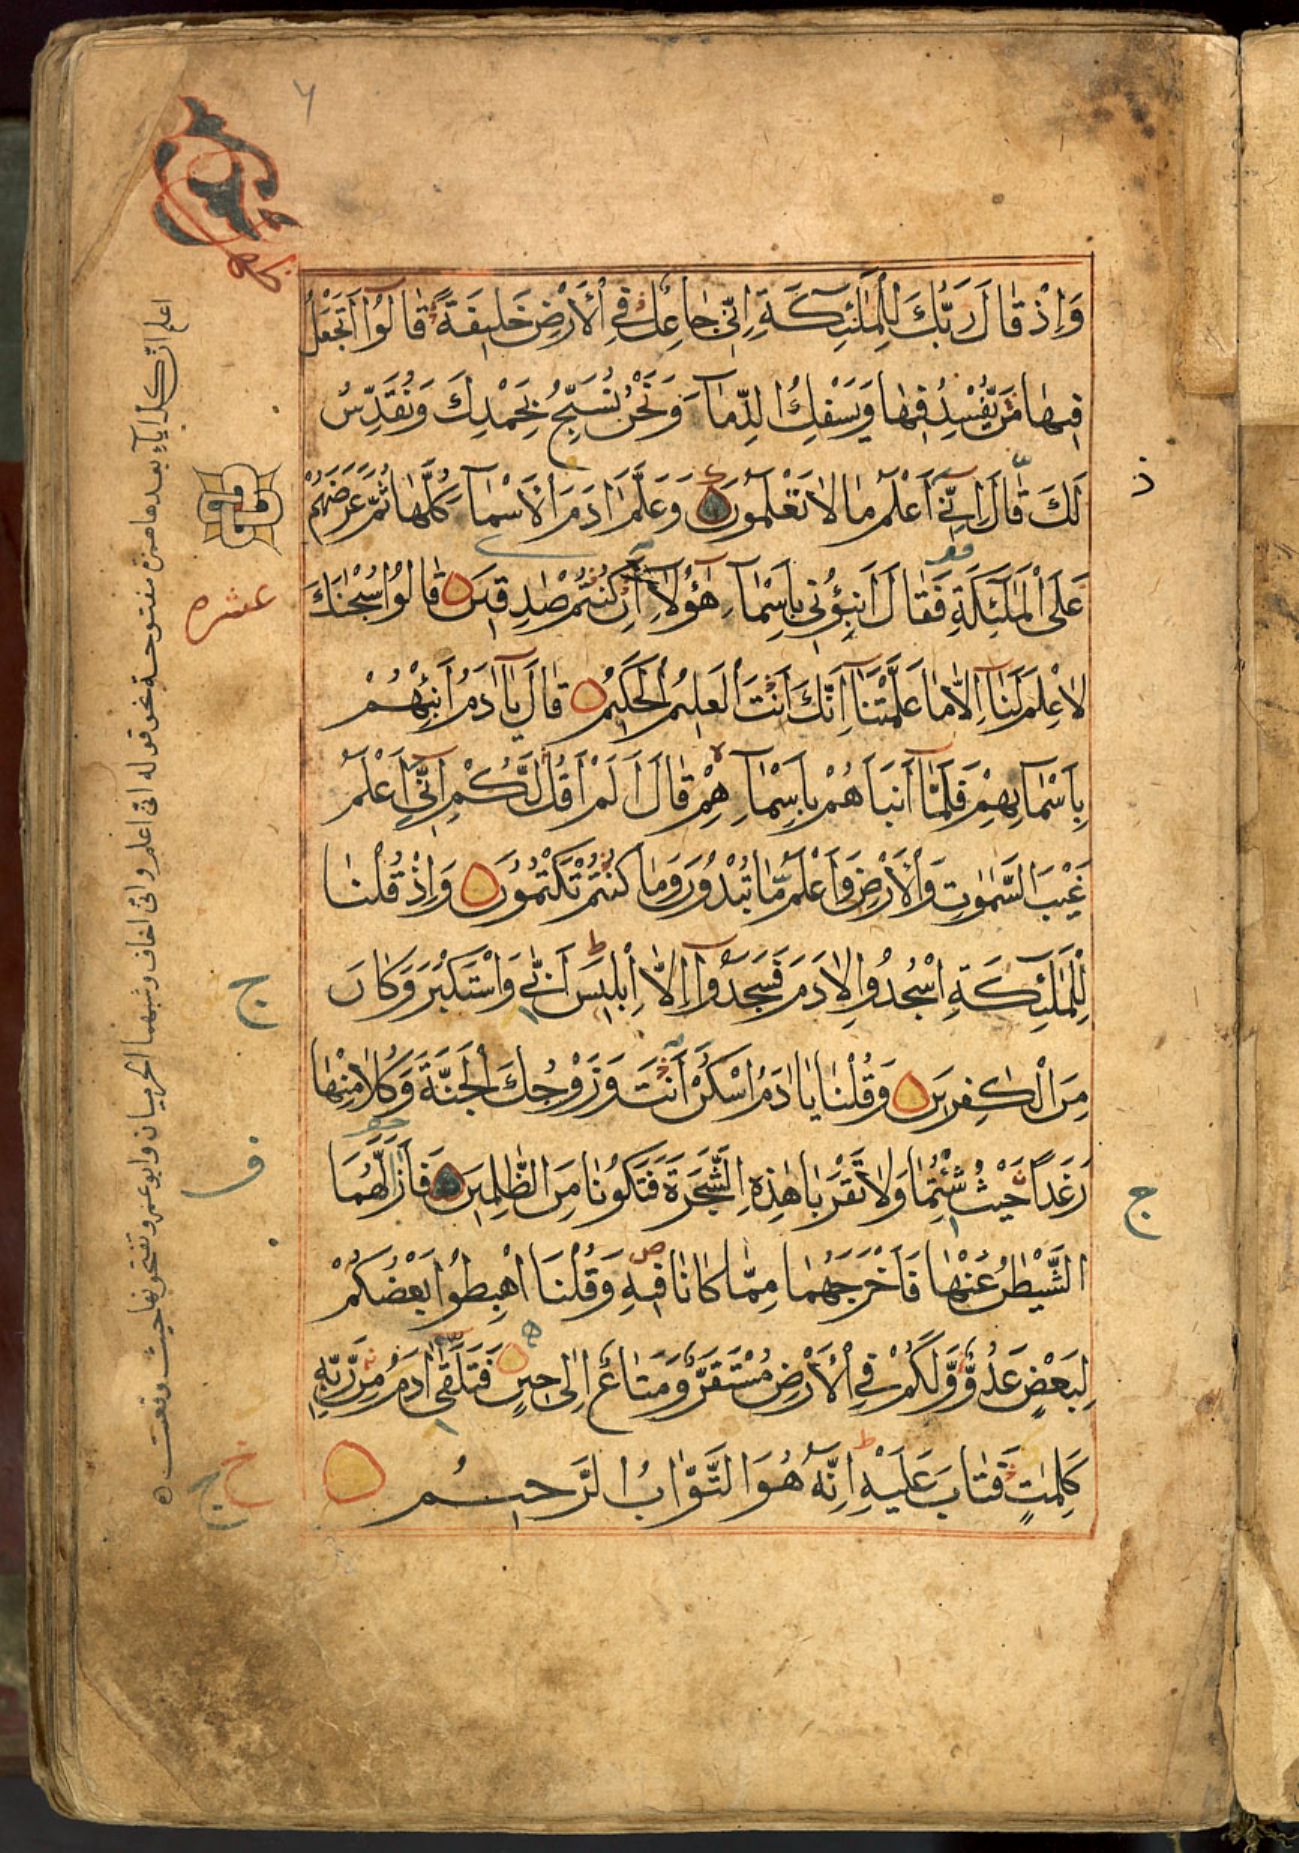 ٦
وَإِذْ قَالَ رَبُّكَ لِلْمَلٰئِكَةِ اِنِّي جَاعِلٌ فِي الْأَرْضِ خَلِيفَةً قَالُوٓا اَتَجْعَلُ
فِيهَا مَنْ يُّفْسِدُ فِيهَا وَيَسْفِكُ الدِّمَآءَ وَنَحْنُ نُسَبِّحُ بِحَمْدِكَ وَنُقَدِّسُ
لَكَ قَالَ اِنِّيٓ اَعْلَمُ مَا لَا تَعْلَمُونَ وَعَلَّمَ اٰدَمَ الْاَسْمَآءَ كُلَّهَا ثُمَّ عَرَضَهُمْ
عَلَى الْمَلٰٓئِكَةِ فَقَالَ اَنْبِؤُنِي بِاَسْمَآءِ هٰٓؤُلَآءِ اِنْ كُنْتُمْ صٰدِقِينَ قَالُوْا سُبْحٰنَكَ
لَا عِلْمَ لَنَآ اِلَّا مَا عَلَّمْتَنَآ اِنَّكَ اَنْتَ الْعَلِيمُ الْحَكِيمُ قَالَ يَآ اٰدَمُ اَنْبِئْهُمْ
بِاَسْمَآئِهِمْ فَلَمَّآ اَنْبَاَهُمْ بِاَسْمَآئِهِمْ قَالَ اَلَمْ اَقُلْ لَّكُمْ اِنِّيٓ اَعْلَمُ
غَيْبَ السَّمٰوٰتِ وَالْأَرْضِ وَاَعْلَمُ مَا تُبْدُونَ وَمَا كُنْتُمْ تَكْتُمُونَ وَاِذْ قُلْنَا
لِلْمَلٰٓئِكَةِ اسْجُدُوْا لِاٰدَمَ فَسَجَدُوٓا اِلَّآ اِبْلِيسَ اَبٰى وَاسْتَكْبَرَ وَكَانَ
مِنَ الْكٰفِرِينَ وَقُلْنَا يَا اٰدَمُ اسْكُنْ اَنْتَ وَزَوْجُكَ الْجَنَّةَ وَكُلَا مِنْهَا
رَغَدًا حَيْثُ شِئْتُمَا وَلَا تَقْرَبَا هٰذِهِ الشَّجَرَةَ فَتَكُونَا مِنَ الظّٰلِمِينَ فَاَزَلَّهُمَا
الشَّيْطٰنُ عَنْهَا فَاَخْرَجَهُمَا مِمَّا كَانَا فِيهِ وَقُلْنَا اهْبِطُوْا بَعْضُكُمْ
لِبَعْضٍ عَدُوٌّ وَّلَكُمْ فِي الْأَرْضِ مُسْتَقَرٌّ وَّمَتَاعٌ اِلٰى حِينٍ فَتَلَقّٰٓى اٰدَمُ مِنْ رَّبِّهٖ
كَلِمٰتٍ فَتَابَ عَلَيْهِ اِنَّهٗ هُوَ التَّوَّابُ الرَّحِيمُ
اعلم ان كل ياء بعدها همزة مفتوحة نحو قوله اني اعلم واني اخاف وشبههما الحرميان وابو عمرو بفتحونها حيث وقعت
عشره
ج
ف
ج
خ
ج